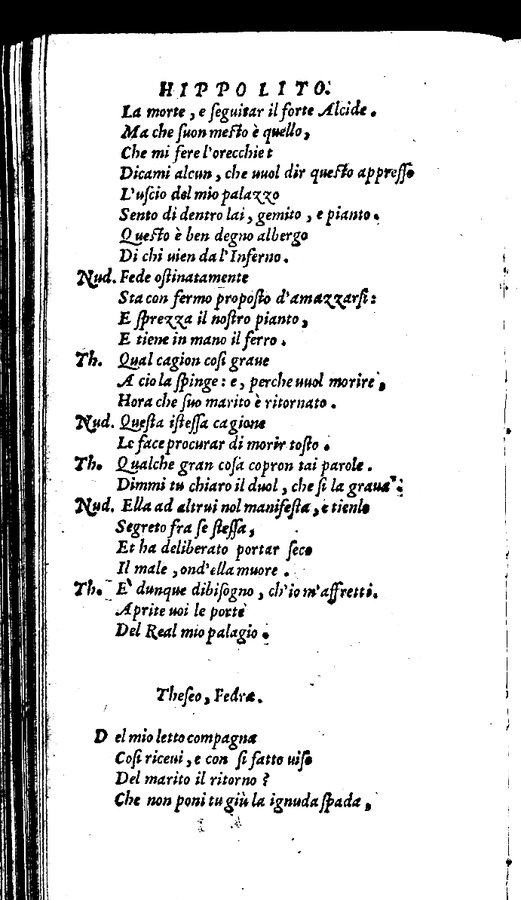 HIPPOLITO.
La morte, e ſeguitar il forte Alcide.
Ma che ſuon meſto è quello,
Che mi fere l'orecchie?
Dicami alcun, che uuol dir queſto appreſſo
L'uſcio del mio palazzo
Sento di dentro lai, gemito, e pianto.
Queſto è ben degno albergo
Di chi uien da l'Inferno.
Nud. Fede oſtinatamente
Sta con fermo propoſto d'amazzarſi:
E ſprezza il noſtro pianto,
E tiene in mano il ferro.
Th. Qual cagion coſi graue
A cio la ſpinge: e, perche uuol morire,
Hora che ſuo marito è ritornato.
Nud. Queſta iſteſſa cagione
Le face procurar di morir toſto.
Th. Qualche gran coſa copron tai parole.
Dimmi tu chiaro il duol, che ſi la graua.
Nud. Ella ad altrui nol manifeſta, e tienlo
Segreto fra ſe ſteſſa,
Et ha deliberato portar ſeco
Il male, ond'ella muore.
Th. E' dunque dibiſogno, ch'io m'affretti.
Aprite uoi le porte
Del Real mio palagio.
Theſeo, Fedra.
Del mio letto compagna
Coſi riceui, e con ſi fatto uiſo
Del marito il ritorno?
Che non poni tu giù la ignuda ſpada,